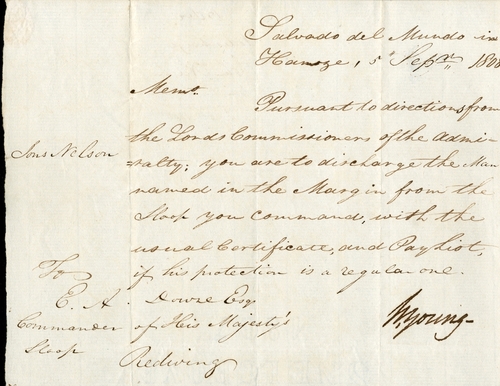 Salvado del Mundo in
Hamoze, 5th Sepr. 1808
Memo.
Pursuant to directions from
the Lords Commissioners of the Admi-
Jons Nelson
=ralty; you are to discharge the Man
named in the Margin from the
Sloop you command, with the
usual Certificate, and Pay List,
if his protection is a regular one.
To
E. A. Downe Esqr
Commander of His Majesty's
Sloop Redwing
W. Young